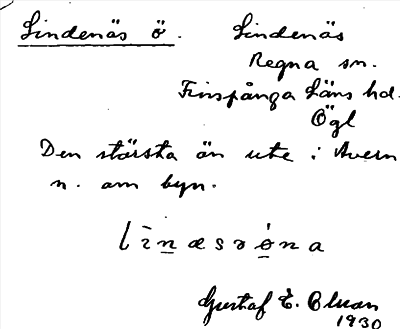 Lindenäs ö. Lindenäs
Regna sn.
Finspånga Läns hd.
Ögl
Den största ön ute i Avern
n. om byn.
līn̲æsrö̲na
Gustaf E. Cluan
1930